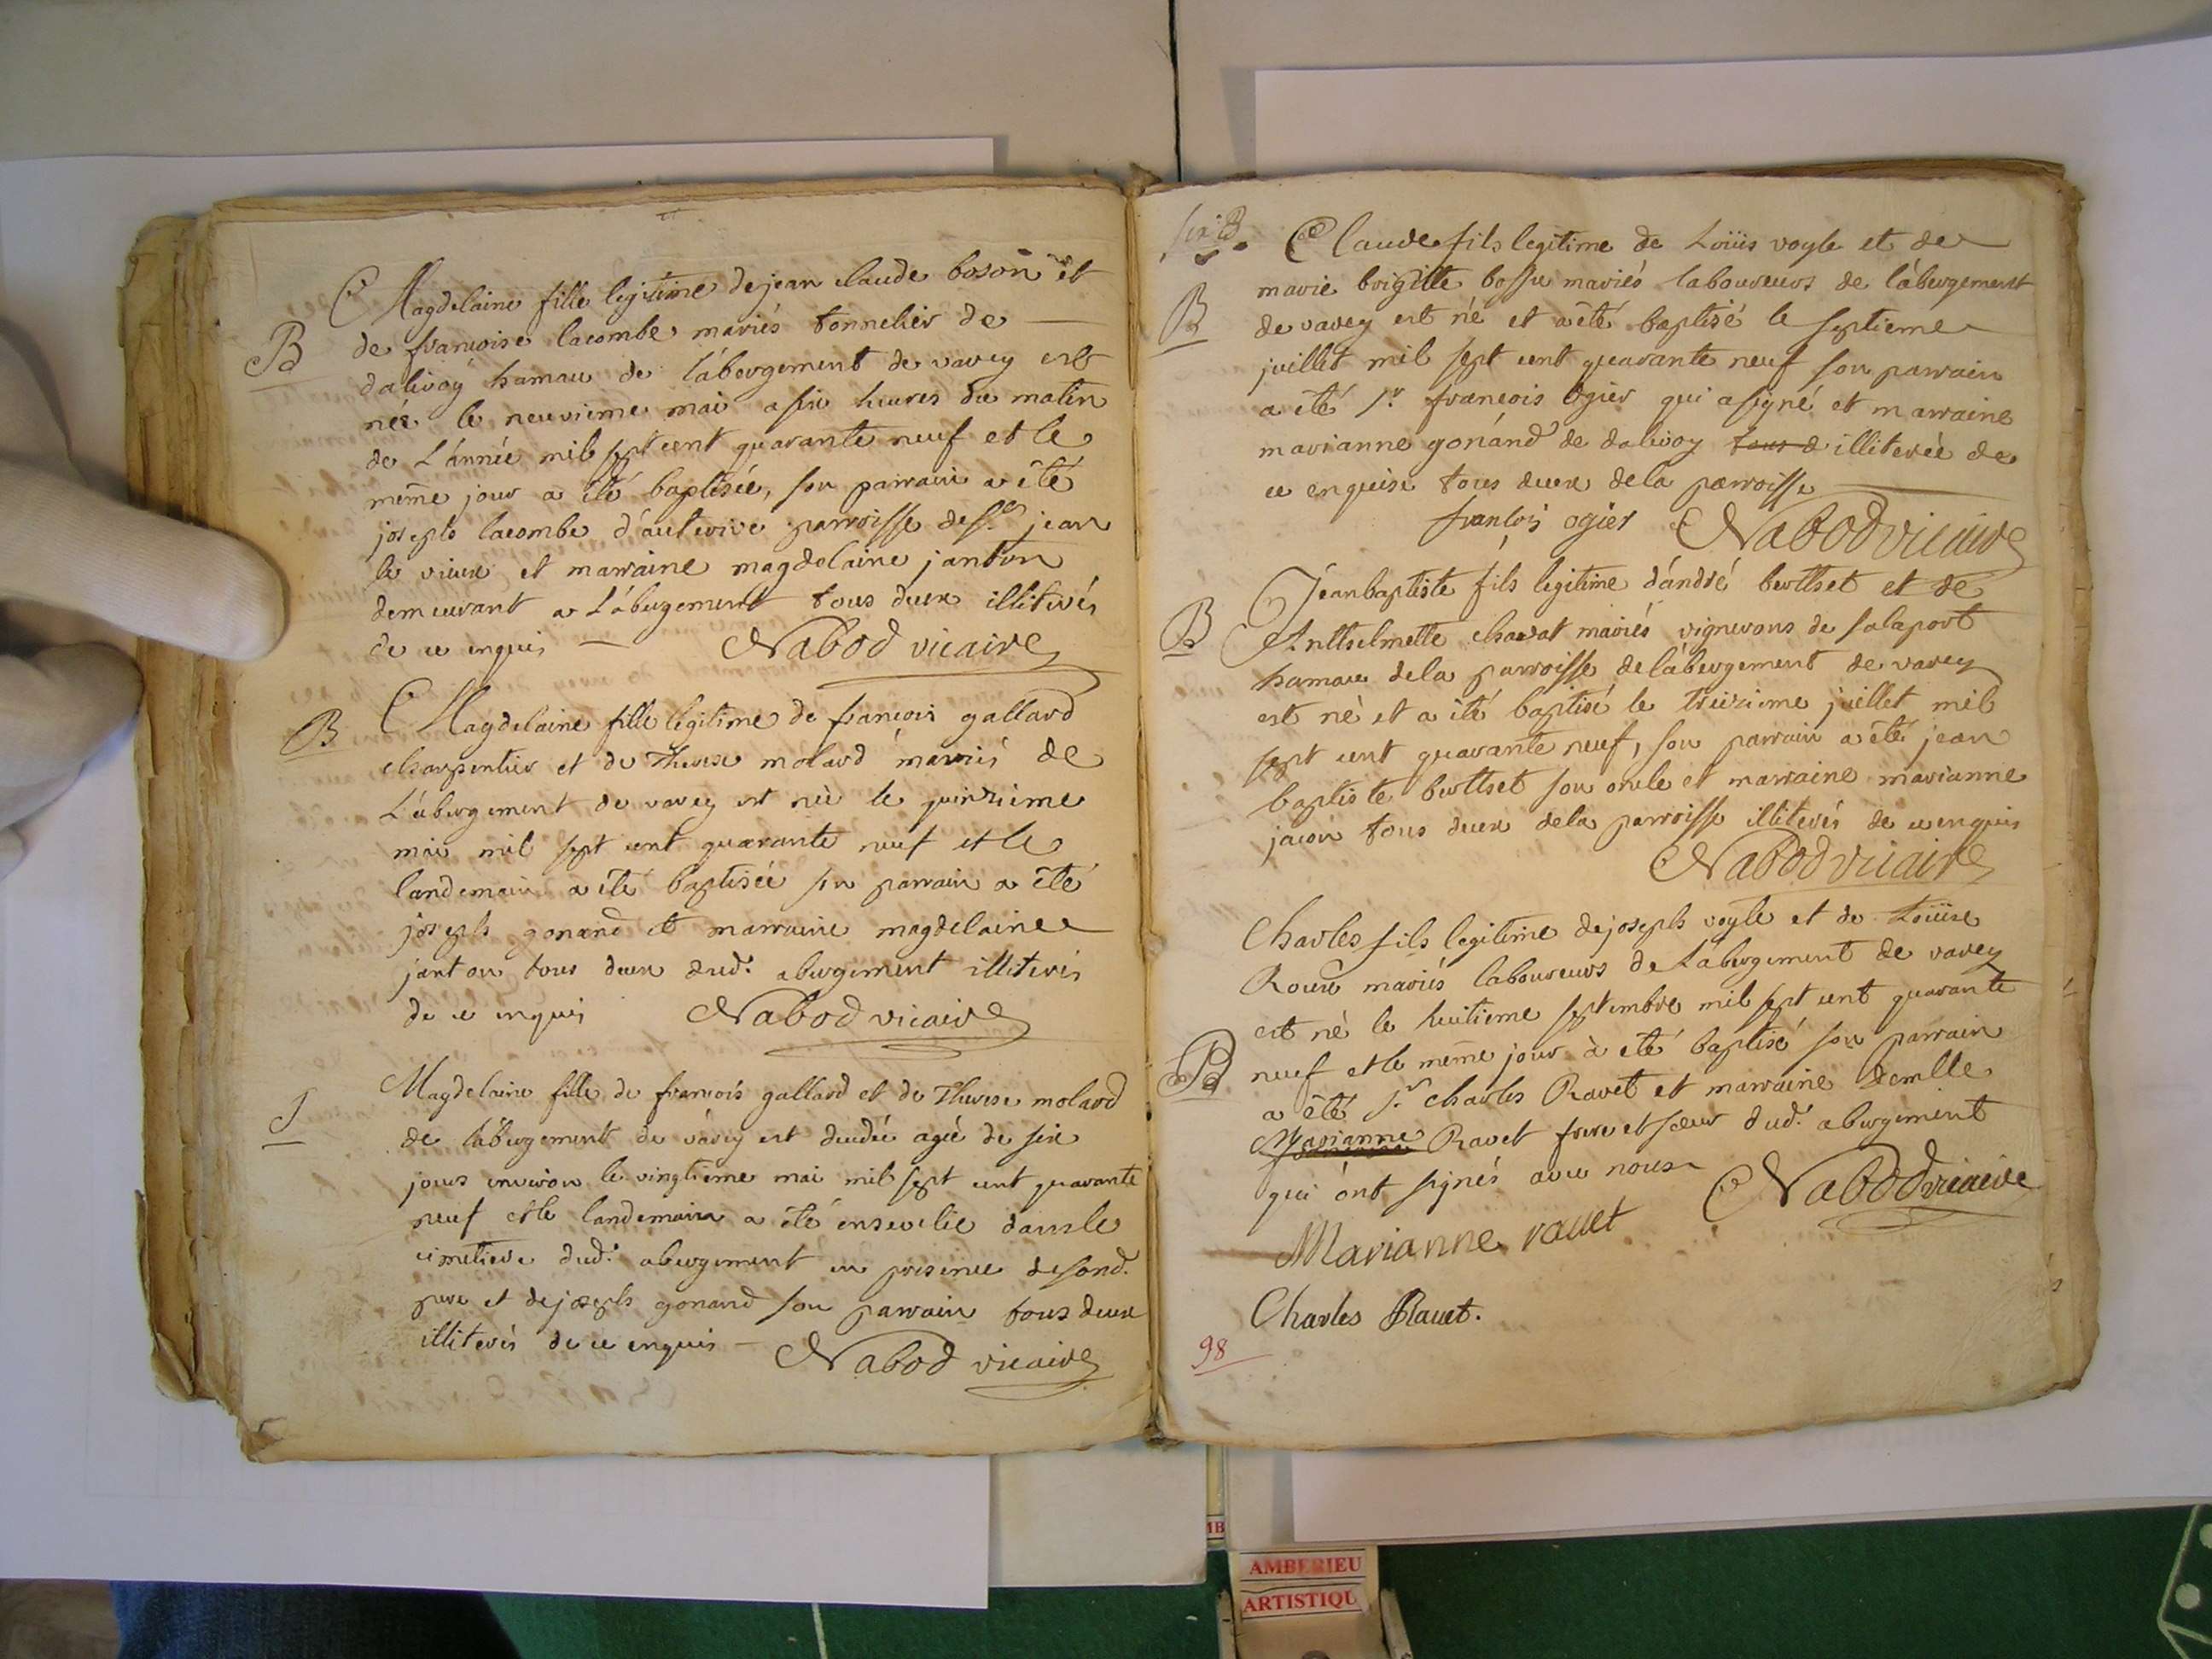 B
Magdelaine fille legitime de jean claude boson et
de francoise lacombe mariés tonnelier de
dalivoy hamau de l'ábergement de varey est
née le neuvieme mai a six heures du matin
de L'année mil sept cent quarante neuf et le
même jour a été baptisée, son parrain a été
joseph lacombe d'auterive parroisse de st jean
le vieux et marraine magdelaine janton
demeurant a L'abergement tous deux illiterés
de ce enquis Nabod vicaire
B
Magdelaine fille legitime de francois gallard
charpentier et de Therese molard mariés de
L'abergement de varey est née le quinzieme
mai mil sept cent quarante neuf et le
landemain a été baptisée son parrain a été
joseph gonand et marraine magdelaine
janton tous deux dud. abergement illiterés
de ce enquis Nabod vicaire
S
Magdelaine fille de francois gallard et de Therese molard
de l'abergement de varey est decedée agée de six
jours environ le vingtieme mai mil sept cent quarante
neuf et le landemain a été ensevelie dans le
cimetiere dud. abergement en presence de sond.
pere et de joseph gonand son parrain tous deux
illiterés de ce enquis Nabod vicaire
B
Claude fils legitime de Loüis voyle et de
marie brigitte bossu mariés laboureurs de l'ábergement
de varey est né et a été baptisé le septieme
juillet mil sept cent quarante neuf son parrain
a été sr. francois ogier qui a signé et marraine
marianne gonánd de dalivoy tous d illiterée de
ce enquise tous deux de la parroisse
françois ogier Nabod vicaire
B
Jean baptiste fils legitime d'andré berttset et de
Antthelmette chavat mariés vignerons de salaport
hamau de la parroisse de l'ábergement de varey
est né et a été baptisé le treizieme juillet mil
sept cent quarante neuf, son parrain a été jean
baptiste berttset son oncle et marraine marianne
tous deux de la parroisse illiterés de ce enquis
Nabod vicaire
Charles fils legitime de joseph voyle et de Loüise
Roux mariés laboureurs de L'abergement de varey
est né le huitieme septembre mil sept cent quarante
B
neuf et le même jour à été baptisé son parrain
a été sr. charles Ravet et marraine demlle
Marianne Ravet frere et sœur dud. abergement
qui ont signés avec nous Nabod vicaire
Marianne ravet
Charles Ravet.
98
AMBERIEU
ARTISTIQU